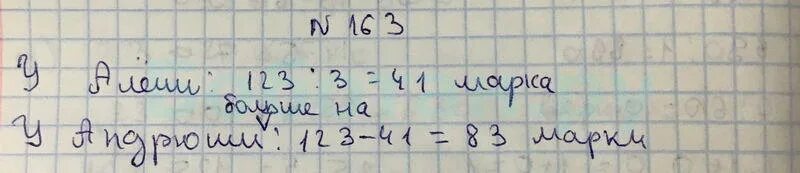 N 163
У Алёши: 123 : 3 = 41 марка
больше на
У Андрюши: 123-41 = 83 марки